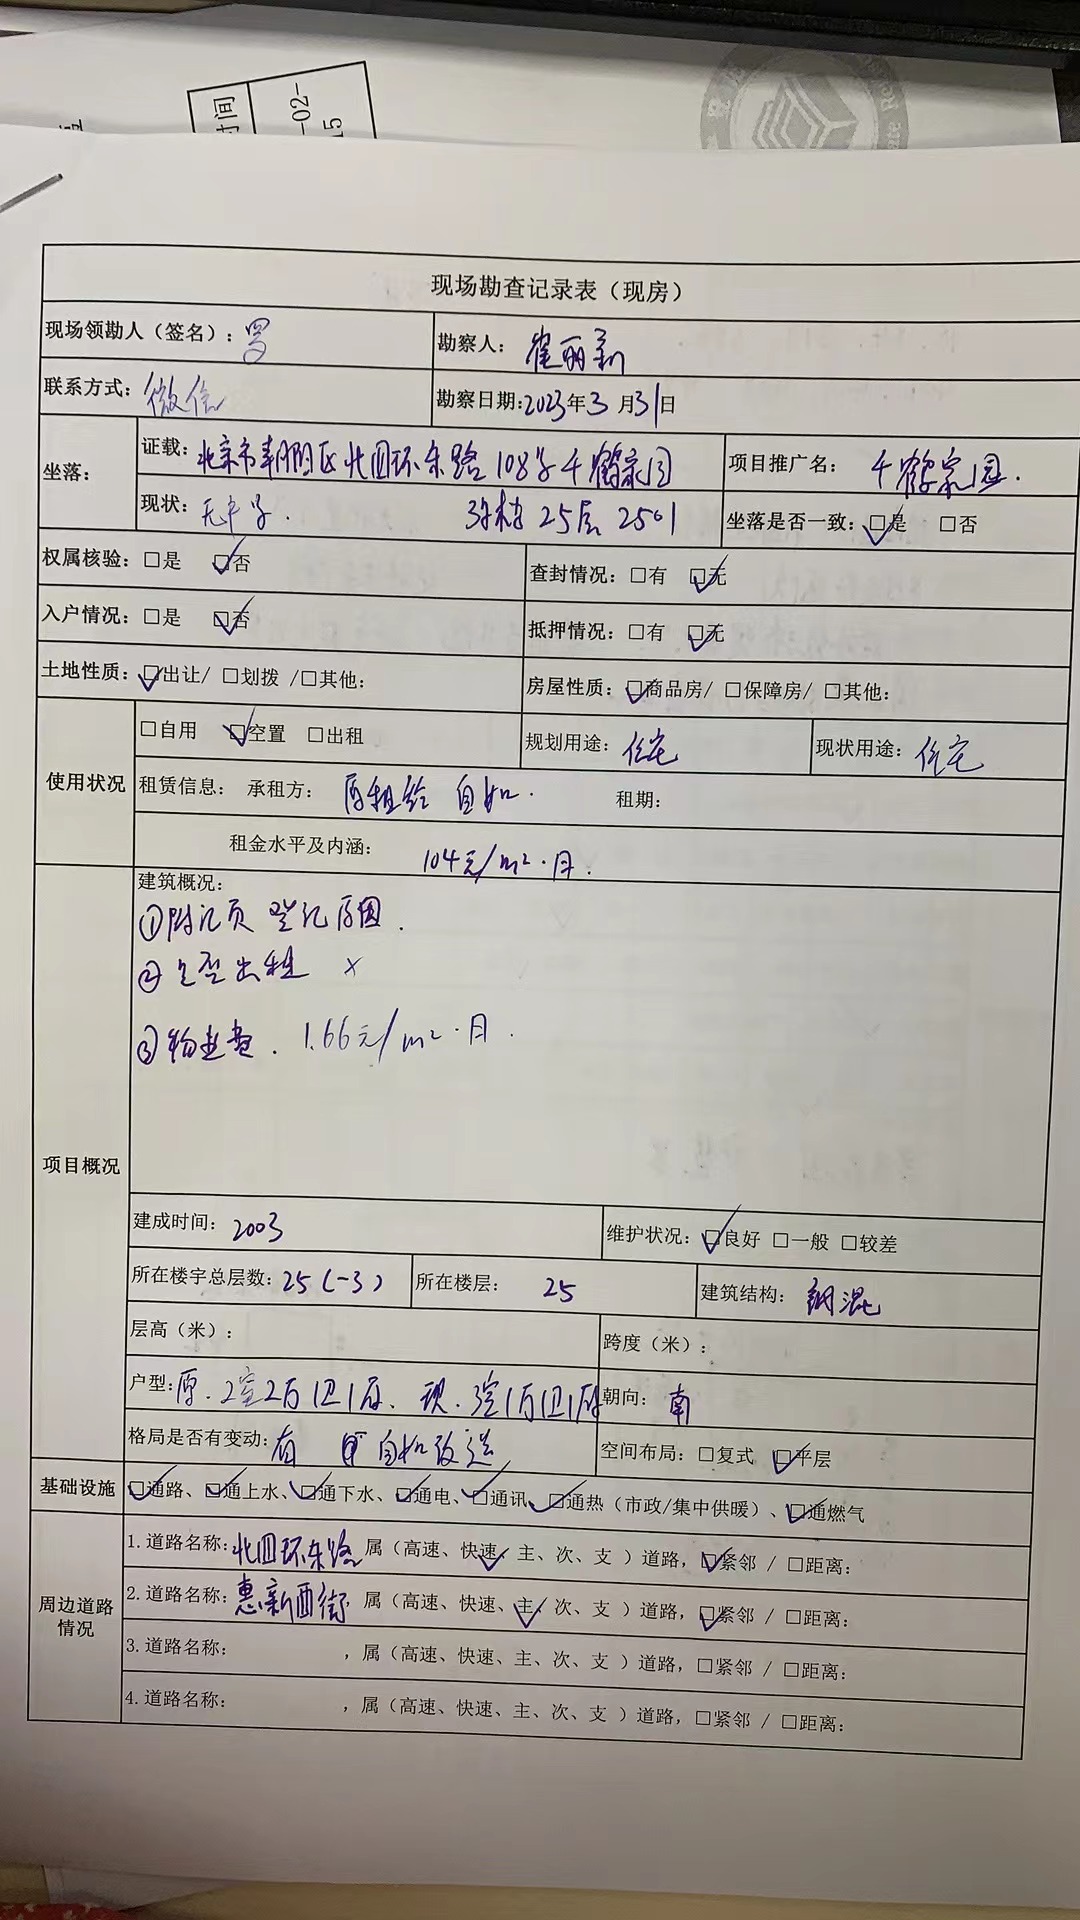 时间
-02-
15
现场勘查记录表（现房）
现场领勘人（签名）：罗
勘察人：崔丽新
联系方式：微信
勘察日期:2023年3月31日
坐落：
证载：北京市朝阳区北四环东路108号千鹤家园
3号楼25层2501
项目推广名：千鹤家园.
现状：无门牌号.
坐落是否一致：☑是 □否
权属核验：□是 ☑否
查封情况：□有 ☑无
入户情况：□是 ☑否
抵押情况：□有 ☑无
土地性质：☑出让/ □划拨 /□其他：
房屋性质：☑商品房/ □保障房/ □其他：
使用状况
□自用 ☑空置 □出租
规划用途：住宅
现状用途：住宅
租赁信息： 承租方： 原租给 自如. 租期：
租金水平及内涵： 104元/m²·月.
项目概况
建筑概况：
①附记页 登记原因.
② 出租 ×
③物业费. 1.66元/m²·月.
建成时间：2003
维护状况：☑良好 □一般 □较差
所在楼宇总层数：25(-3)
所在楼层： 25
建筑结构：钢混
层高（米）：
跨度（米）：
户型:原.2室2厅1卫1厨、现.3室1厅1卫1厨
朝向：南
格局是否有变动：有 自如改造
空间布局：□复式 ☑平层
基础设施
☑通路、☑通上水、☑通下水、☑通电、☑通讯、☑通热（市政/集中供暖）、☑通燃气
周边道路情况
1.道路名称：北四环东路 属（高速、快速✓、主、次、支 ）道路，☑紧邻 / □距离：
2.道路名称：惠新西街，属（高速、快速、主✓、次、支 ）道路，☑紧邻 / □距离：
3.道路名称： ，属（高速、快速、主、次、支 ）道路，□紧邻 / □距离：
4.道路名称： ，属（高速、快速、主、次、支 ）道路，□紧邻 / □距离：